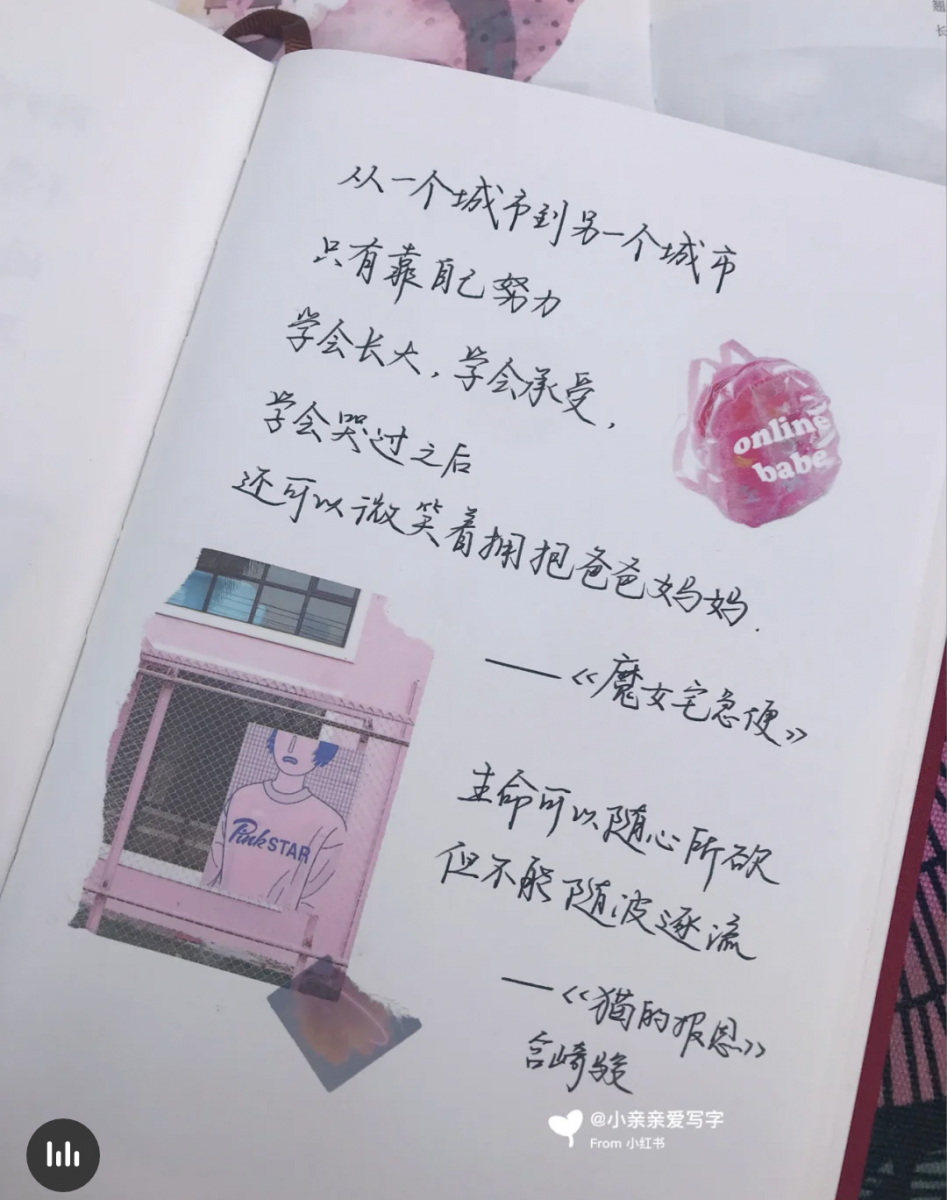 从一个城市到另一个城市
只有靠自己努力
学会长大，学会承受，
学会哭过之后
还可以微笑着拥抱爸爸妈妈.
——《魔女宅急便》
online
babe
PinkSTAR
生命可以随心所欲
但不能随波逐流
——《猫的报恩》
宫崎骏
@小亲亲爱写字
From 小红书